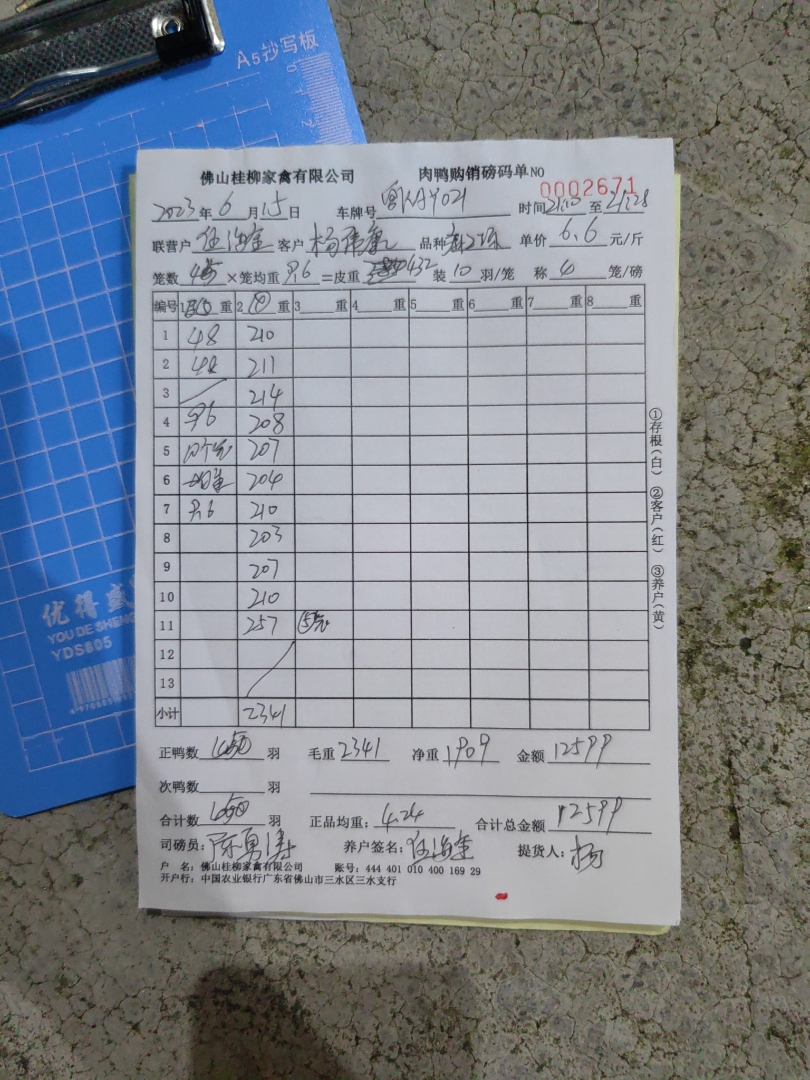 A5抄写板
佛山桂柳家禽有限公司 肉鸭购销磅码单 NO 0002671
2023年6月15日 车牌号 粤KAY021 时间 至 21:28
联营户 客户 品种 单价 6.6 元/斤
笼数 45 ×笼均重 9.6 =皮重 432 装 10 羽/笼 称 4 笼/磅
编号 1 重 2 重 3 重 4 重 5 重 6 重 7 重 8 重
1 48 210
2 48 211
3 214
4 9.6 208
5 207
6 204
7 9.6 210
8 203
9 207
10 210
11 257 ⑤
12
13
小计 2341
正鸭数 450 羽 毛重 2341 净重 1909 金额 12599
次鸭数 羽
合计数 450 羽 正品均重: 4.24 合计总金额 12599
司磅员: 陈勇 养户签名: 提货人: 杨
户 名: 佛山桂柳家禽有限公司 账号: 444 401 010 400 169 29
开户行: 中国农业银行广东省佛山市三水区三水支行
①存根(白) ②客户(红) ③养户(黄)
优得盛
YOU DE SHENG
YDS805